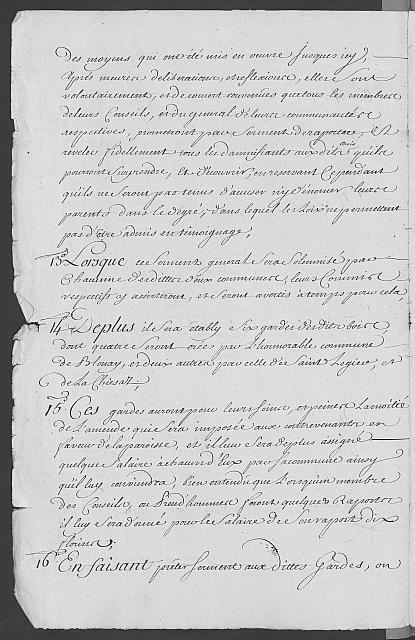 des moyens qui ont été mis en oeuvre jusques icy,
après meures deliberations, et reflexions, elles sont
volontairement, et de concert convenues que tous les membres
de leurs Conseils, et du general de leurs communautés
respectives, promettront par serment de rapporter, et
reveler fidellement tous les damnifiants aux dits bois qu'ils
pourront surprendre, et découvrir, en reservant cependant
qu'ils ne seront pas tenus d'accuser ny denoncer leurs
parents dans le degré, dans lequel les Loix ne permettent
pas d'être admis en temoignage,
15° Lorsque ce serment general sera solemnisé, par
Chacune des dittes deux communes, leurs Commis
respectifs y assisteront, et seront avertis à temps pour cela,
14° De plus il sera établÿ six gardes des dits bois,
dont quatre seront crées par l'honorable commune
de Blonay, et deux autres par celle de Saint Legier, et
de La Chiesaz,
15° Ces gardes auront pour leurs soins, et peines la moitié
de l'amende qui sera imposée aux contrevenants en
faveur de la paroisse, et il leur sera de plus assigné
quelque salaire à chacun d'eux par sa commune ainsy
qu'il luy conviendra, bien entendu que lorsqu'un membre
des Conseils, ou Preudhommes feront quelques Rapports
il luy sera donné pour le salaire de son rapport dix
florins,
16° En faisant prêter serment aux dittes Gardes, on